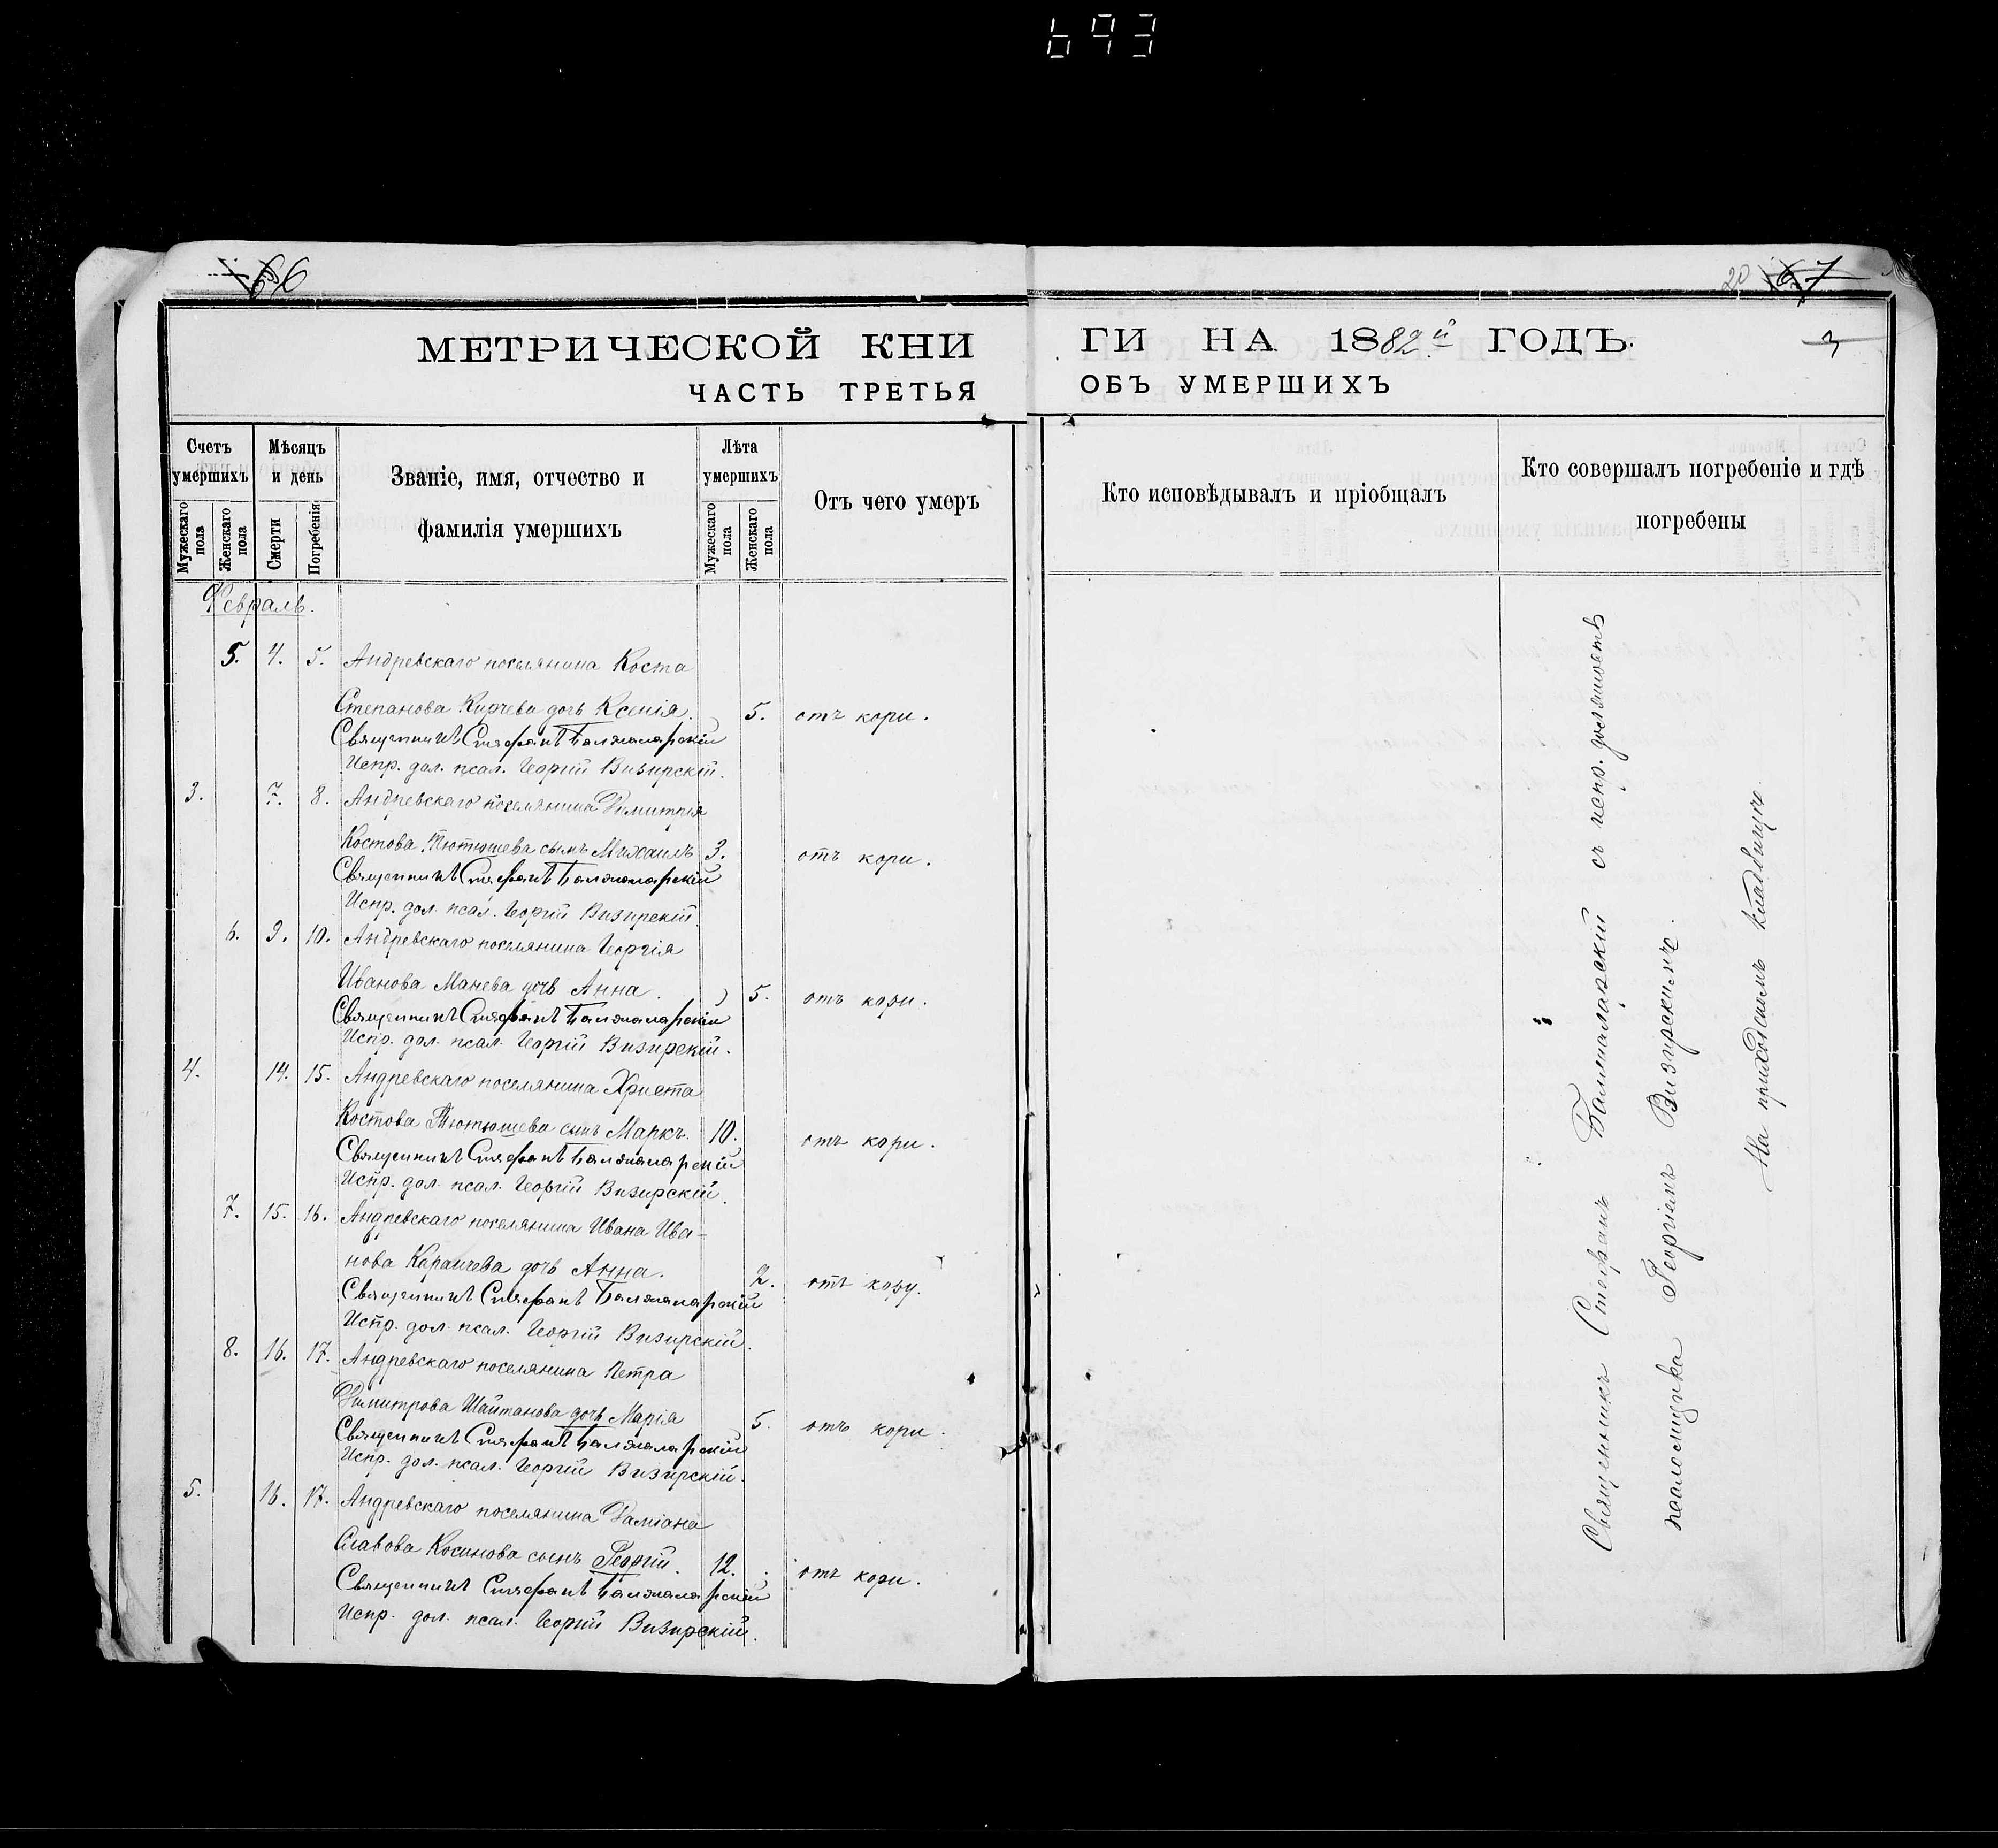 693
66
20
67
3
МЕТРИЧЕСКОЙ КНИ
ГИ НА 1882й ГОДЪ.
ЧАСТЬ ТРЕТЬЯ
ОБЪ УМЕРШИХЪ
Счетъ умершихъ
Мужескаго пола
Женскаго пола
Мѣсяцъ и день
Смерти
Погребенія
Званіе, имя, отчество и
фамилія умершихъ
Лѣта умершихъ
Мужескаго пола
Женскаго пола
Отъ чего умеръ
Кто исповѣдывалъ и пріобщалъ
Кто совершалъ погребеніе и гдѣ
погребены
Февраль.
5. 4. 5. Андревскаго поселянина Коста
Степанова Кирчева дочь Ксенія. 5. отъ кори.
Священникъ Стефанъ
Испр. дол. псал. Георгій Визирскій.
3. 7. 8. Андревскаго поселянина Димитрія
Костова Тютюшева сынъ Михаилъ 3. отъ кори.
Священникъ Стефанъ
Испр. дол. псал. Георгій Визирскій.
6. 9. 10. Андревскаго поселянина Георгія
Иванова Манева дочь Анна. 5. отъ кори.
Священникъ Стефанъ
Испр. дол. псал. Георгій Визирскій.
4. 14. 15. Андревскаго поселянина Христа
Костова Тютюшева сынъ Маркъ. 10. отъ кори.
Священникъ Стефанъ
Испр. дол. псал. Георгій Визирскій.
7. 15. 16. Андревскаго поселянина Ивана Ива-
нова дочь Анна. 2. отъ кору.
Священникъ Стефанъ
Испр. дол. псал. Георгій Визирскій.
8. 16. 17. Андревскаго поселянина Петра
Димитрова Шайтанова дочь Марія 5. отъ кори.
Священникъ Стефанъ
Испр. дол. псал. Георгій Визирскій.
5. 16. 17. Андревскаго поселянина Даміана
Славова Косинова сынъ Георгій. 12. отъ кори.
Священникъ Стефанъ
Испр. дол. псал. Георгій Визирскій.
Священникъ Стефанъ съ испр. должность
псаломщика Георгіемъ Визирскимъ.
На приходскомъ кладбищѣ.